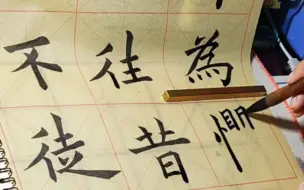 不往為
徒昔